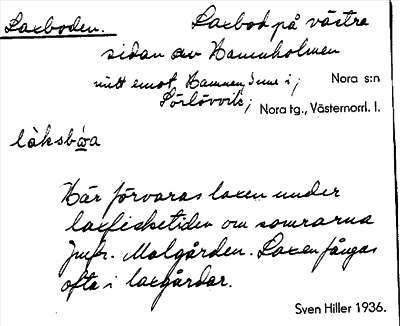 Laxboden. Laxbod på västra
sidan av Hamnholmen
mitt emot Hamnen, inne i, Nora s:n
Sörlövvik; Nora tg., Västernorrl. l.
làksbóa
Här förvaras laxen under
laxfisketiden om somrarna
Jmfr. Malgården. Laxen fångas
ofta i laxgårdar.
Sven Hiller 1936.